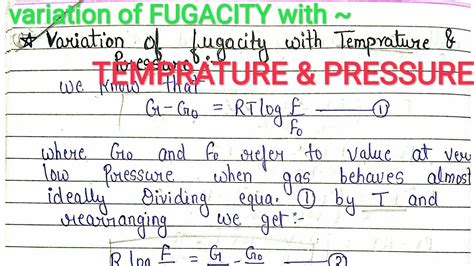 variation of FUGACITY with ~
* Variation of fugacity with Temprature &
Pressure :-
TEMPRATURE & PRESSURE
we know that
G-G₀ = RTlog f/f₀ ——— ①
where G₀ and f₀ refer to value at very
low Pressure when gas behaves almost
ideally Dividing equa. ① by T and
rearranging we get:-
R log f/ = G/ - G₀/ ——— ②